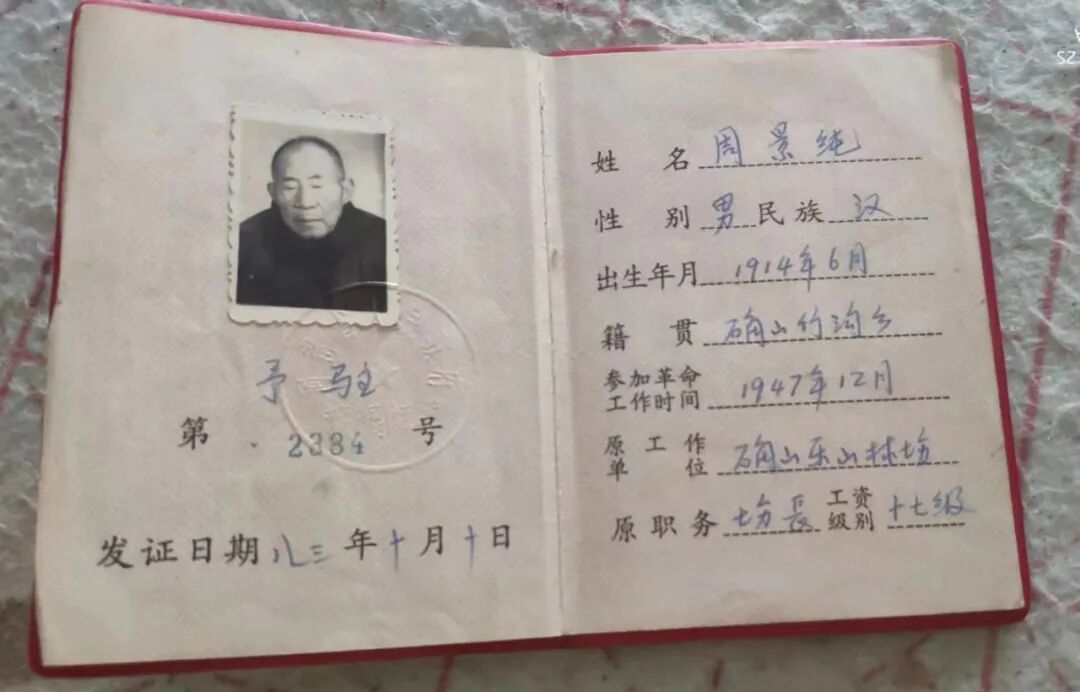 予 驻
第 2384 号
发证日期 八三 年 十 月 十 日
姓 名 周景纯
性 别 男 民族 汉
出生年月 1914年6月
籍 贯 确山竹沟乡
参加革命
工作时间 1947年12月
原工作
单 位 确山乐山林场
原职务 场长 工资
级别 十七级